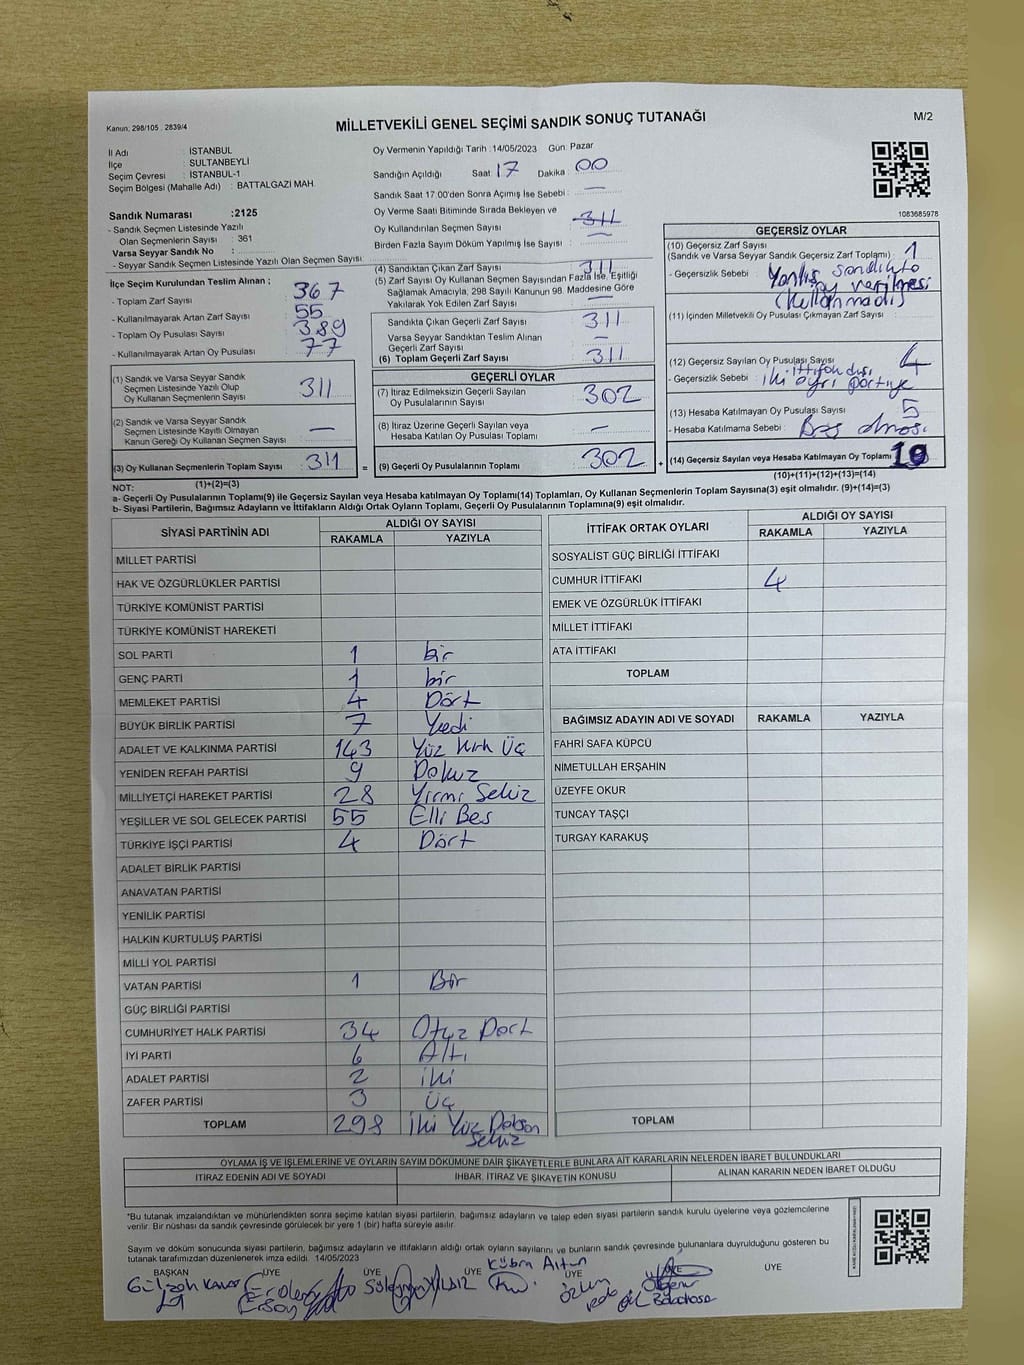 Kanun: 298/105 : 2839/4
MİLLETVEKİLİ GENEL SEÇİMİ SANDIK SONUÇ TUTANAĞI
M/2
İl Adı : İSTANBUL
İlçe : SULTANBEYLİ
Seçim Çevresi : İSTANBUL-1
Seçim Bölgesi (Mahalle Adı) : BATTALGAZİ MAH.
Sandık Numarası :2125
- Sandık Seçmen Listesinde Yazılı
Olan Seçmenlerin Sayısı : 361
Varsa Seyyar Sandık No :
- Seyyar Sandık Seçmen Listesinde Yazılı Olan Seçmen Sayısı :
Oy Vermenin Yapıldığı Tarih : 14/05/2023 Gün: Pazar
Sandığın Açıldığı Saat 17 Dakika : 00
Sandık Saat 17.00'den Sonra Açımış İse Sebebi : —
Oy Verme Saati Bitiminde Sırada Bekleyen ve
Oy Kullandırılan Seçmen Sayısı : 311
Birden Fazla Sayım Döküm Yapılmış İse Sayısı : —
1083685978
İlçe Seçim Kurulundan Teslim Alınan ;
- Toplam Zarf Sayısı : 367
- Kullanılmayarak Artan Zarf Sayısı : 55
- Toplam Oy Pusulası Sayısı : 389
- Kullanılmayarak Artan Oy Pusulası : 77
(1) Sandık ve Varsa Seyyar Sandık
Seçmen Listesinde Yazılı Olup
Oy Kullanan Seçmenlerin Sayısı : 311
(2) Sandık ve Varsa Seyyar Sandık
Seçmen Listesinde Kayıtlı Olmayan
Kanun Gereği Oy Kullanan Seçmen Sayısı : —
(3) Oy Kullanan Seçmenlerin Toplam Sayısı : 311
(1)+(2)=(3)
(4) Sandıktan Çıkan Zarf Sayısı : 311
(5) Zarf Sayısı Oy Kullanan Seçmen Sayısından Fazla İse, Eşitliği
Sağlamak Amacıyla, 298 Sayılı Kanunun 98. Maddesine Göre
Yakılarak Yok Edilen Zarf Sayısı : —
Sandıkta Çıkan Geçerli Zarf Sayısı : 311
Varsa Seyyar Sandıktan Teslim Alınan
Geçerli Zarf Sayısı : —
(6) Toplam Geçerli Zarf Sayısı : 311
GEÇERLİ OYLAR
(7) İtiraz Edilmeksizin Geçerli Sayılan
Oy Pusulalarının Sayısı : 302
(8) İtiraz Üzerine Geçerli Sayılan veya
Hesaba Katılan Oy Pusulası Toplamı : —
= (9) Geçerli Oy Pusulalarının Toplamı : 302
GEÇERSİZ OYLAR
(10) Geçersiz Zarf Sayısı
(Sandık ve Varsa Seyyar Sandık Geçersiz Zarf Toplamı) : 1
- Geçersizlik Sebebi : Yanlış sandıkta
oy verilmesi
(kullanmadı)
(11) İçinden Milletvekili Oy Pusulası Çıkmayan Zarf Sayısı :
(12) Geçersiz Sayılan Oy Pusulası Sayısı : 4
- Geçersizlik Sebebi : ittifak dışı
iki ayrı partiye
(13) Hesaba Katılmayan Oy Pusulası Sayısı : 5
- Hesaba Katılmama Sebebi : Boş olması
+ (14) Geçersiz Sayılan veya Hesaba Katılmayan Oy Toplamı : 10
(10)+(11)+(12)+(13)=(14)
NOT:
a- Geçerli Oy Pusulalarının Toplamı(9) ile Geçersiz Sayılan veya Hesaba katılmayan Oy Toplamı(14) Toplamları, Oy Kullanan Seçmenlerin Toplam Sayısına(3) eşit olmalıdır. (9)+(14)=(3)
b- Siyasi Partilerin, Bağımsız Adayların ve İttifakların Aldığı Ortak Oyların Toplamı, Geçerli Oy Pusulalarının Toplamına(9) eşit olmalıdır.
SİYASİ PARTİNİN ADI ALDIĞI OY SAYISI
RAKAMLA YAZIYLA
MİLLET PARTİSİ
HAK VE ÖZGÜRLÜKLER PARTİSİ
TÜRKİYE KOMÜNİST PARTİSİ
TÜRKİYE KOMÜNİST HAREKETİ
SOL PARTİ 1 bir
GENÇ PARTİ 1 bir
MEMLEKET PARTİSİ 4 Dört
BÜYÜK BİRLİK PARTİSİ 7 Yedi
ADALET VE KALKINMA PARTİSİ 143 Yüz Kırk Üç
YENİDEN REFAH PARTİSİ 9 Dokuz
MİLLİYETÇİ HAREKET PARTİSİ 28 Yirmi Sekiz
YEŞİLLER VE SOL GELECEK PARTİSİ 55 Elli Beş
TÜRKİYE İŞÇİ PARTİSİ 4 Dört
ADALET BİRLİK PARTİSİ
ANAVATAN PARTİSİ
YENİLİK PARTİSİ
HALKIN KURTULUŞ PARTİSİ
MİLLİ YOL PARTİSİ
VATAN PARTİSİ 1 Bir
GÜÇ BİRLİĞİ PARTİSİ
CUMHURİYET HALK PARTİSİ 34 Otuz Dört
İYİ PARTİ 6 Altı
ADALET PARTİSİ 2 iki
ZAFER PARTİSİ 3 Üç
TOPLAM 298 İki Yüz Doksan
Sekiz
İTTİFAK ORTAK OYLARI ALDIĞI OY SAYISI
RAKAMLA YAZIYLA
SOSYALİST GÜÇ BİRLİĞİ İTTİFAKI
CUMHUR İTTİFAKI 4
EMEK VE ÖZGÜRLÜK İTTİFAKI
MİLLET İTTİFAKI
ATA İTTİFAKI
TOPLAM
BAĞIMSIZ ADAYIN ADI VE SOYADI RAKAMLA YAZIYLA
FAHRİ SAFA KÜPCÜ
NİMETULLAH ERŞAHİN
ÜZEYFE OKUR
TUNCAY TAŞÇI
TURGAY KARAKUŞ
TOPLAM
OYLAMA İŞ VE İŞLEMLERİNE VE OYLARIN SAYIM DÖKÜMÜNE DAİR ŞİKAYETLERLE BUNLARA AİT KARARLARIN NELERDEN İBARET BULUNDUKLARI
İTİRAZ EDENİN ADI VE SOYADI İHBAR, İTİRAZ VE ŞİKAYETİN KONUSU ALINAN KARARIN NEDEN İBARET OLDUĞU
*Bu tutanak imzalandıktan ve mühürlendikten sonra seçime katılan siyasi partilerin, bağımsız adayların ve talep eden siyasi partilerin sandık kurulu üyelerine veya gözlemcilerine
verilir. Bir nüshası da sandık çevresinde görülecek bir yere 1 (bir) hafta süreyle asılır.
Sayım ve döküm sonucunda siyasi partilerin, bağımsız adayların ve ittifakların aldığı ortak oyların sayılarını ve bunların sandık çevresinde bulunanlara duyrulduğunu gösteren bu
tutanak tarafımızdan düzenlenerek imza edildi. 14/05/2023
BAŞKAN ÜYE ÜYE ÜYE ÜYE ÜYE ÜYE
Kübra Altun